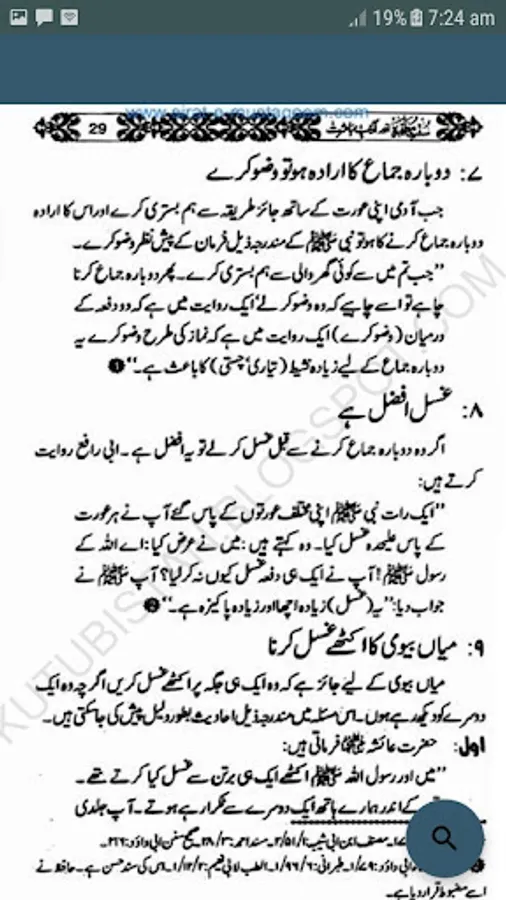 19% 7:24 am
www.sirat-e-mustaqeem.com
29
۷: دوبارہ جماع کا ارادہ ہو تو وضو کرے
جب آدمی اپنی عورت کے ساتھ جائز طریقہ سے ہم بستری کرے اور اس کا ارادہ
دوبارہ جماع کرنے کا ہو تو نبی ﷺ کے مندرجہ ذیل فرمان کے پیش نظر وضو کرے۔
”جب تم میں سے کوئی گھر والی سے ہم بستری کرے۔ پھر دوبارہ جماع کرنا
چاہے تو اسے چاہیے کہ وہ وضو کر لے‘ ایک روایت میں ہے کہ دو دفعہ کے
درمیان (وضو کرے) ایک روایت میں ہے کہ نماز کی طرح وضو کرے یہ
دوبارہ جماع کے لیے زیادہ نشیط (تیاری‘ چستی) کا باعث ہے۔“ ❶
۸: غسل افضل ہے
اگر وہ دوبارہ جماع کرنے سے قبل غسل کر لے تو یہ افضل ہے۔ ابی رافع روایت
کرتے ہیں:
”ایک رات نبی ﷺ اپنی مختلف عورتوں کے پاس گئے آپ نے ہر عورت
کے پاس علیحدہ غسل کیا۔ وہ کہتے ہیں: میں نے عرض کیا: اے اللہ کے
رسول ﷺ! آپ نے ایک ہی دفعہ غسل کیوں نہ کر لیا؟ آپ ﷺ نے
جواب دیا: ”یہ (غسل) زیادہ اچھا اور زیادہ پاکیزہ ہے۔“ ❷
۹: میاں بیوی کا اکٹھے غسل کرنا
میاں بیوی کے لیے جائز ہے کہ وہ ایک ہی جگہ پر اکٹھے غسل کریں اگرچہ وہ ایک
دوسرے کو دیکھ رہے ہوں۔ اس مسئلہ میں مندرجہ ذیل احادیث بطور دلیل پیش کی جا سکتی ہیں۔
اول: حضرت عائشہ ؓ فرماتی ہیں:
”میں اور رسول اللہ ﷺ اکٹھے ایک ہی برتن سے غسل کیا کرتے تھے۔
کے اندر ہمارے ہاتھ ایک دوسرے سے ٹکرا رہے ہوتے۔ آپ جلدی
مصنف ابن ابی شیبہ: ۲/۵۱/۱۔ مسند احمد: ۲۸/۳۔ صحیح سنن ابی داؤد: ۲۱۶۔
ابی داؤد: ۷۹/۱۔ طبرانی: ۹۶/۶/۱۔ الطب لابی نعیم: ۱۲/۲/۱۔ اس کی سند حسن ہے۔ حافظ نے
اسے مضبوط قرار دیا ہے۔
KUTUBISTAN.BLOGSPOT.COM